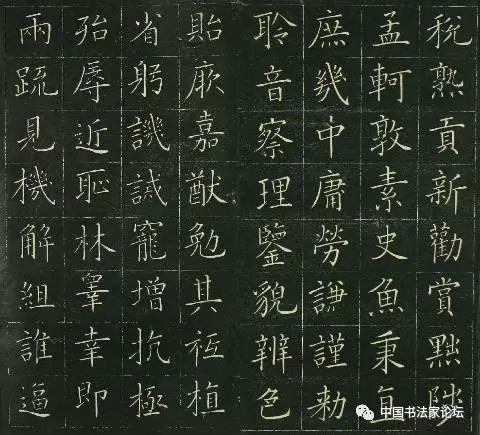 稅熟貢新勸賞黜陟
孟軻敦素史魚秉直
庶幾中庸勞謙謹勅
聆音察理鑒貌辨色
貽厥嘉猷勉其祗植
省躬譏誡寵增抗極
殆辱近恥林皋幸即
兩疏見機解組誰逼
中国书法家论坛